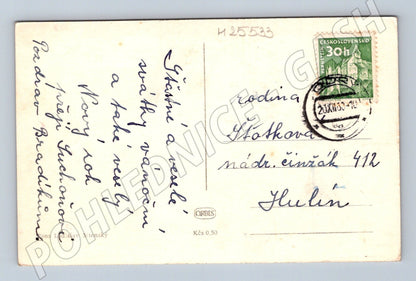 425533
Šťastné a veselé
svátky vánoční
a také veselý
Nový rok
přejí Suchoňovi
Pozdrav Bradíkům
ČESKOSLOVENSKO
30h
rodina
Šťotkova
nádr. činžák 412
Hulín
ORBIS
Kčs 0,50
POHLEDNICE